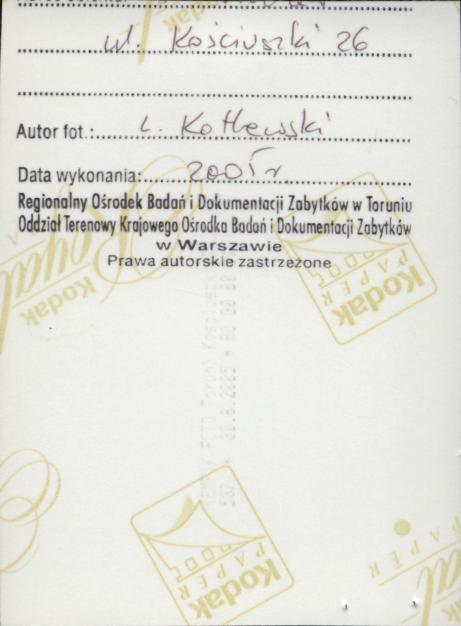 ul. Kościuszki 26
Autor fot.: L. Kotlewski
Data wykonania: 2005 r.
Regionalny Ośrodek Badań i Dokumentacji Zabytków w Toruniu
Oddział Terenowy Krajowego Ośrodka Badań i Dokumentacji Zabytków
w Warszawie
Prawa autorskie zastrzeżone
Royal
Kodak
Kodak
PAPER
Kodak
PAPER
PAPER